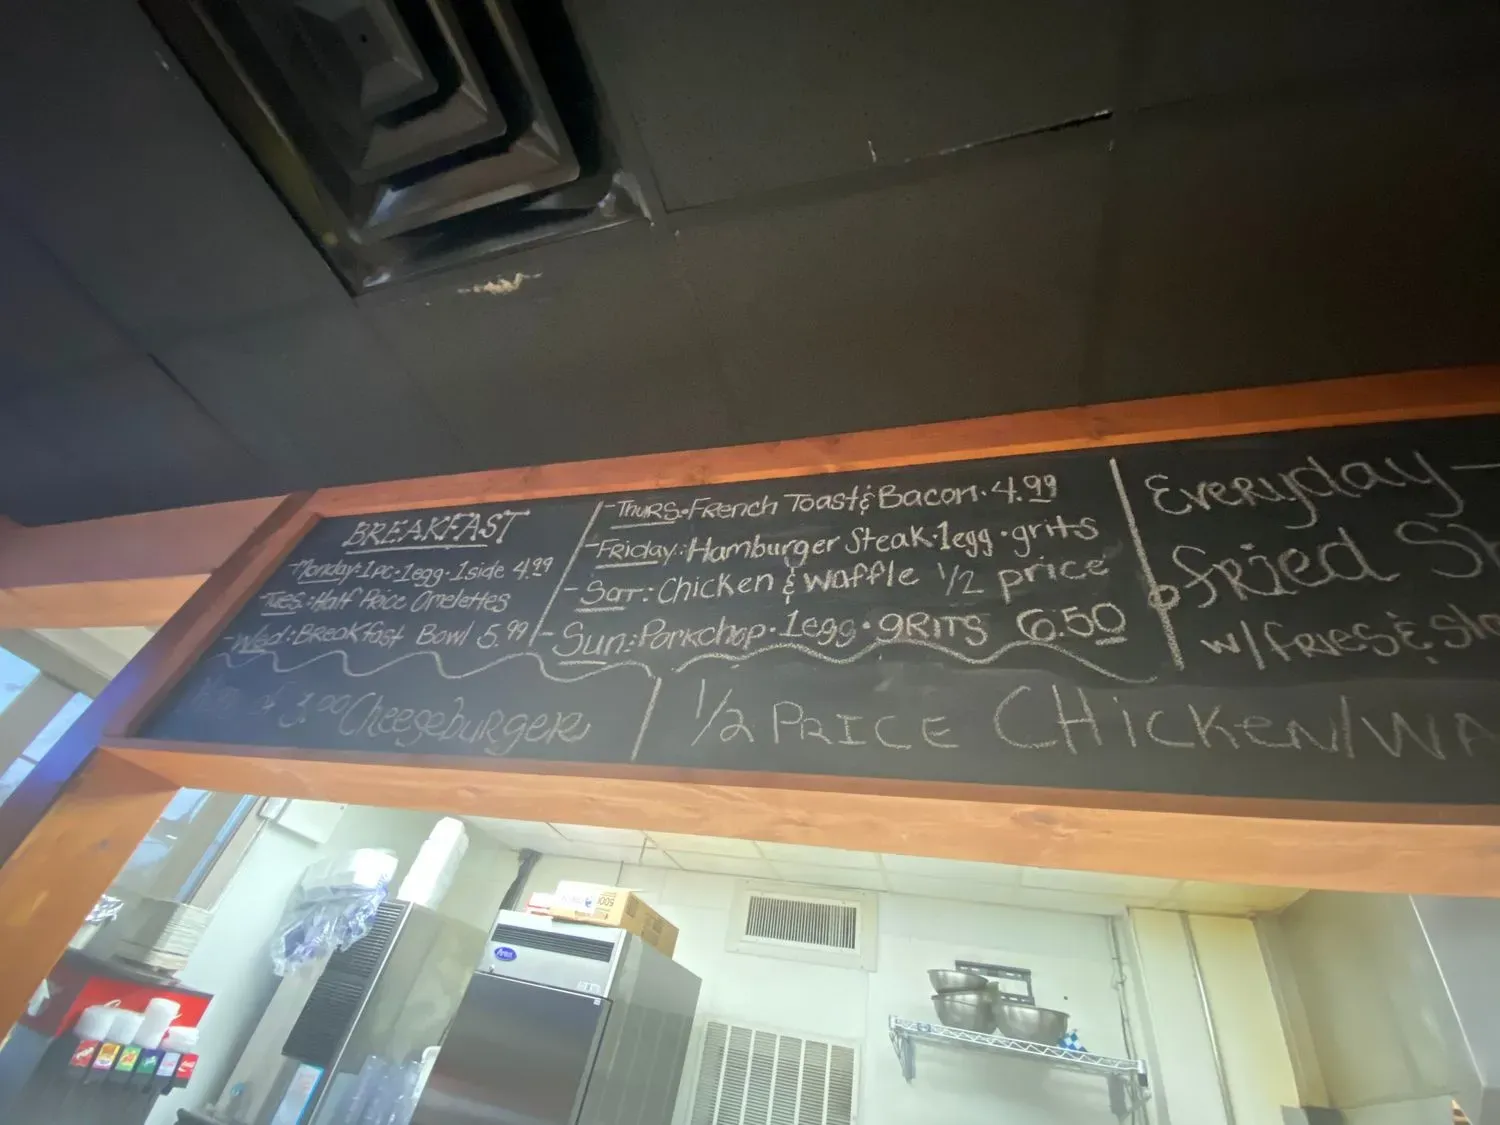 BREAKFAST
-Monday·1pc·1egg·1side 4.99
-Tues.:Half Price Omelettes
-Wed:Breakfast Bowl 5.99
-Thurs·French Toast & Bacon·4.99
-Friday:Hamburger Steak·1egg·grits
-Sat:Chicken & Waffle 1/2 price
-Sun:Porkchop·1egg·GRITS 6.50
Everyday-
Fried
w/FRIES &
3.00 Cheeseburger
1/2 PRICE CHicKen/WA